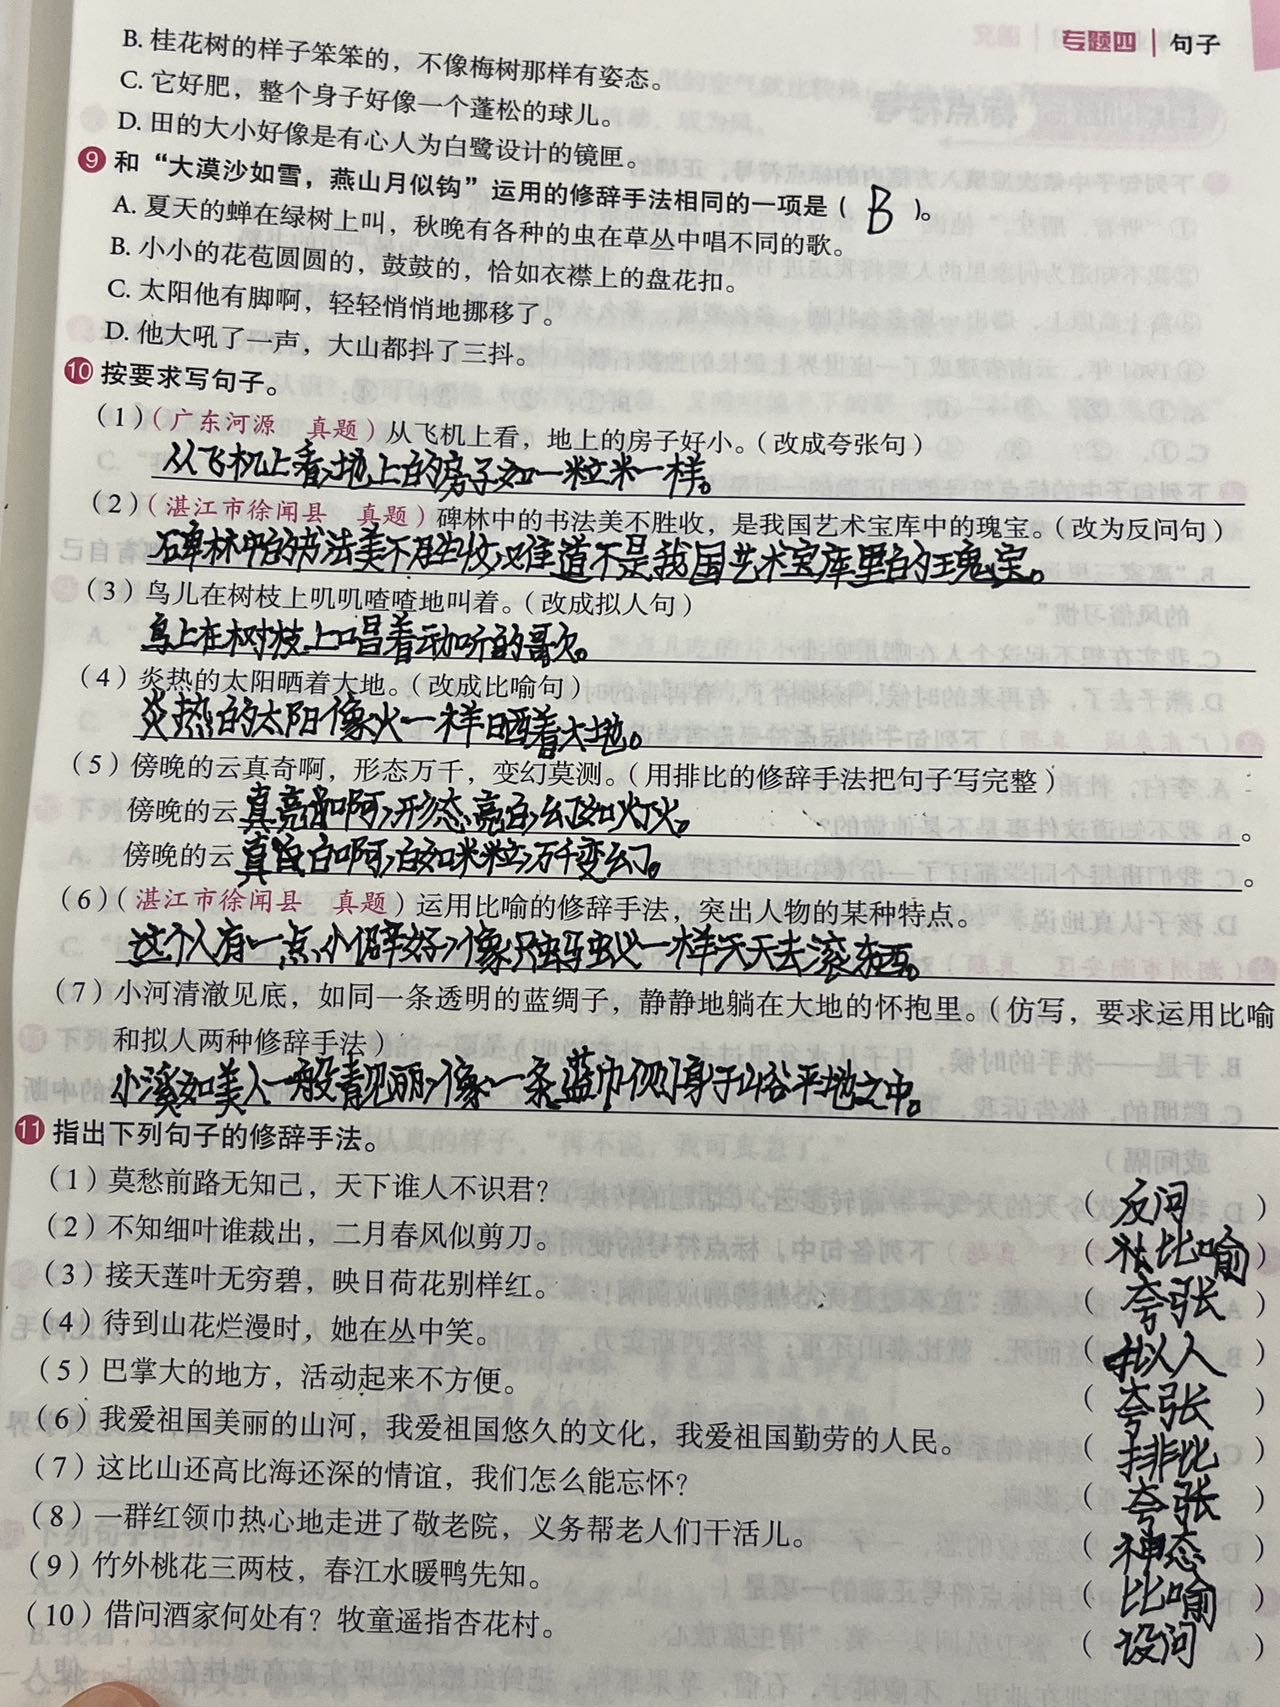 专题四 | 句子
B. 桂花树的样子笨笨的，不像梅树那样有姿态。
C. 它好肥，整个身子好像一个蓬松的球儿。
D. 田的大小好像是有心人为白鹭设计的镜匣。
9 和“大漠沙如雪，燕山月似钩”运用的修辞手法相同的一项是（ B ）。
A. 夏天的蝉在绿树上叫，秋晚有各种的虫在草丛中唱不同的歌。
B. 小小的花苞圆圆的，鼓鼓的，恰如衣襟上的盘花扣。
C. 太阳他有脚啊，轻轻悄悄地挪移了。
D. 他大吼了一声，大山都抖了三抖。
10 按要求写句子。
（1）（广东河源 真题）从飞机上看，地上的房子好小。（改成夸张句）
从飞机上看，地上的房子如一粒米一样。
（2）（湛江市徐闻县 真题）碑林中的书法美不胜收，是我国艺术宝库中的瑰宝。（改为反问句）
碑林中的书法美不胜收，难道不是我国艺术宝库里的瑰宝。
（3）鸟儿在树枝上叽叽喳喳地叫着。（改成拟人句）
鸟上在树枝上唱着动听的歌。
（4）炎热的太阳晒着大地。（改成比喻句）
炎热的太阳像火一样晒着大地。
（5）傍晚的云真奇啊，形态万千，变幻莫测。（用排比的修辞手法把句子写完整）
傍晚的云真亮啊，形态亮白，幻如灯火。。
傍晚的云真白啊，白如米粒，万千变幻。。
（6）（湛江市徐闻县 真题）运用比喻的修辞手法，突出人物的某种特点。
这个人有一点小癖好，像只蚂蚁一样天天去滚东西。
（7）小河清澈见底，如同一条透明的蓝绸子，静静地躺在大地的怀抱里。（仿写，要求运用比喻
和拟人两种修辞手法）
小溪如美人一般清见丽，像一条蓝巾侧身于山谷平地之中。
11 指出下列句子的修辞手法。
（1）莫愁前路无知己，天下谁人不识君？（反问）
（2）不知细叶谁裁出，二月春风似剪刀。（比喻）
（3）接天莲叶无穷碧，映日荷花别样红。（夸张）
（4）待到山花烂漫时，她在丛中笑。（拟人）
（5）巴掌大的地方，活动起来不方便。（夸张）
（6）我爱祖国美丽的山河，我爱祖国悠久的文化，我爱祖国勤劳的人民。（排比）
（7）这比山还高比海还深的情谊，我们怎么能忘怀？（夸张）
（8）一群红领巾热心地走进了敬老院，义务帮老人们干活儿。（神态）
（9）竹外桃花三两枝，春江水暖鸭先知。（比喻）
（10）借问酒家何处有？牧童遥指杏花村。（设问）